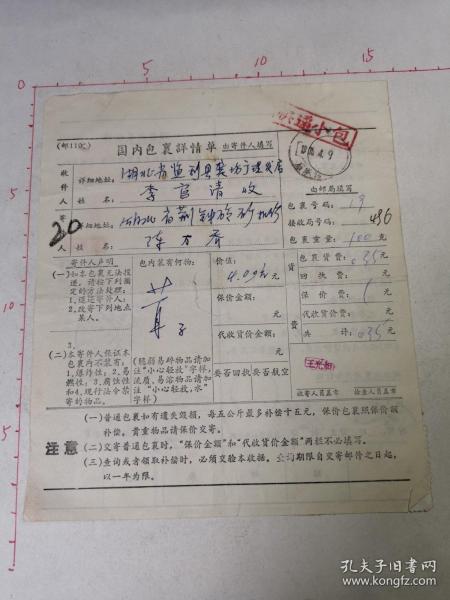 5
10
15
0
快递小包
(邮1101)
国内包裹詳情单 由寄件人填写
收件人
详细地址:
姓名:
李官清收
寄件人
详细地址:
姓名:
20
由邮局填写
包裹号码: 19
接收局号码: 436
包裹重量: 100 克
资费
包裹资费: 035 元
回执费: 元
保价费: 元
代收货价费: 元
共计: 035 元
寄件人声明
(一)如本包裹无法投递,请按下列圈定的方法处理:
1.退还寄件人;
2.改寄下列地点某人。
3.
(二)本寄件人保证本包裹内不装有:
1.爆炸性;2.易燃性;3.腐蚀性和4.现行法令禁寄的物品。
包内装有何物:
(脆弱易碎物品请加注“小心轻放”字样,流质、易溶物品请加注“小心轻放,水”字样)
价值:
元
保价金额:
元
代收货价金额:
元
要否回执要否航空
收寄人员盖章 检查人员盖章
注意
(一)普通包裹如有遗失毁损,每五公斤最多补偿十五元,保价包裹照保价额补偿。贵重物品请保价交寄。
(二)交寄普通包裹时,“保价金额”和“代收货价金额”两栏不必填写。
(三)查询或者领取补偿时,必须交验本收据。查询期限自交寄邮件之日起,以一年为限。
孔夫子旧书网
www.kongfz.com